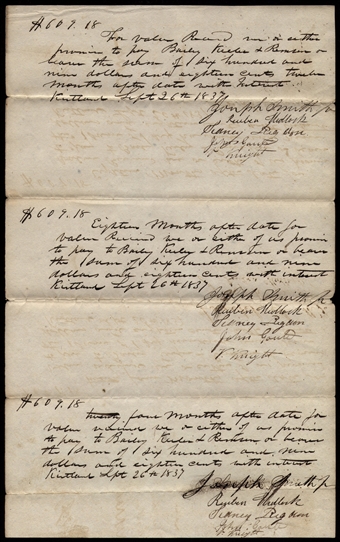 $609.18
For value Received we or either
promise to pay Bailey Keeler & Remsen or
bearer the sum of Six hundred and
nine dollars and eighteen cents twelve
Months after date with Interest
Kirtland Sept 26th 1837
Joseph Smith Jr
Reuben Hedlock
Sidney Rigdon
John Gould
V Knight
$609.18
Eighteen Months after date for
value Received we or Either of us promise
to pay to Bailey Keeler & Remsen or bearer
the Sum of Six hundred and nine
dollars and eighteen cents with interest
Kirtland Sept 26th 1837
Joseph Smith Jr
Reuben Hedlock
Sidney Rigdon
John Gould
V Knight
$609.18
four Months after date for
value received we or either of us promise
to pay to Bailey Keeler & Remsen or bearer
the Sum of Six hundred and nine
dollars and eighteen cents with interest
Kirtland Sept 26th 1837
Joseph Smith Jr
Reuben Hedlock
Sidney Rigdon
John Gould
V Knight